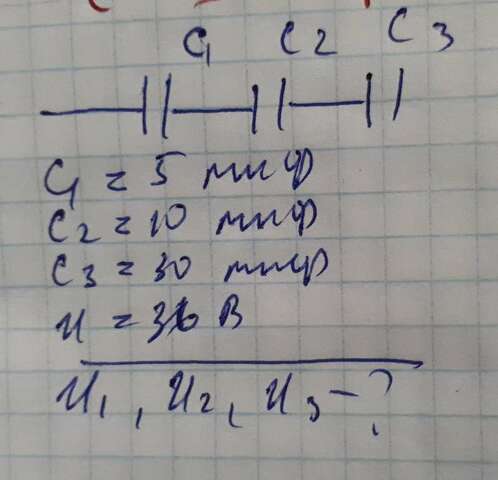 C1 C2 C3
C1 = 5 мкф
C2 = 10 мкф
C3 = 30 мкф
U = 36 В
U1, U2, U3 - ?